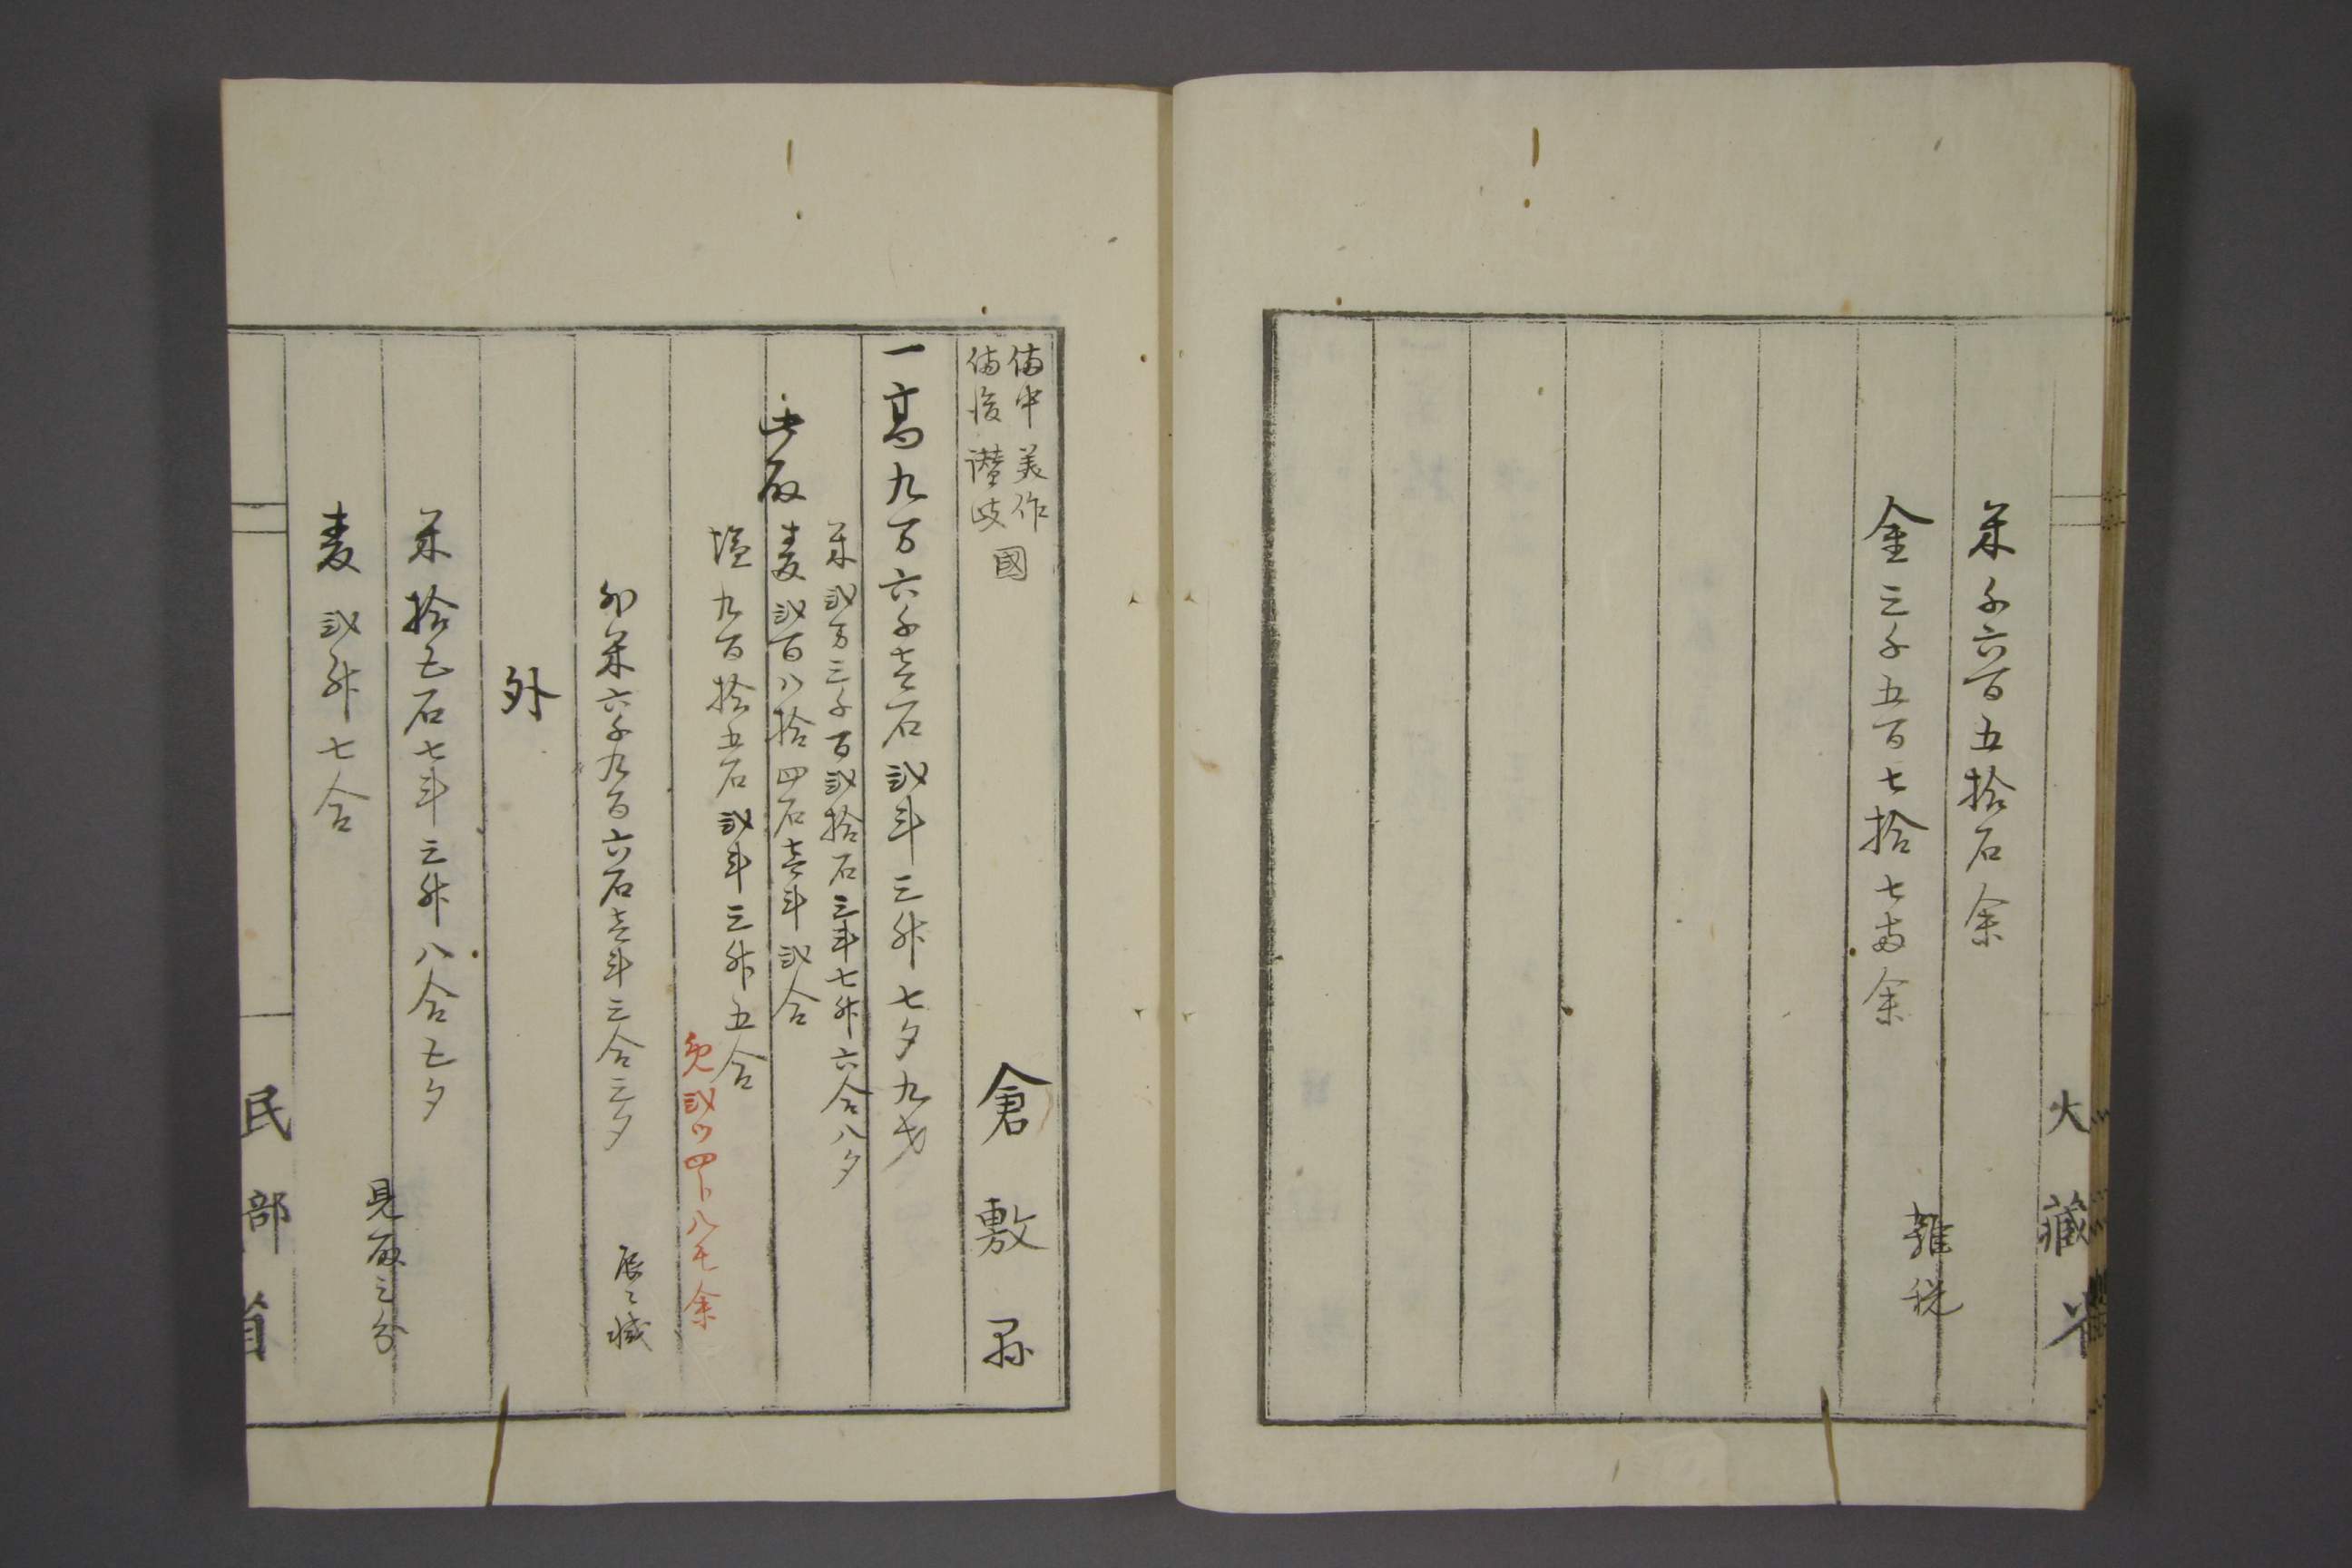 大藏省
米千六百五拾石余
雜税
金三千五百七拾七両余
備中 美作
備後 讃岐 國
倉敷縣
一高九万六千壱石弐斗三升七夕九才
米弐万三千百弐拾石三斗七升六合八夕
此取 麦弐百八拾四石壱斗弐合
塩九百拾五石弐斗三升五合
免弐ツ四卜八毛余
卯米六千九百六石壱斗三合三夕
辰ニ減
外
米拾七石七斗三升八合七夕
見取之分
麦弐升七合
民部省